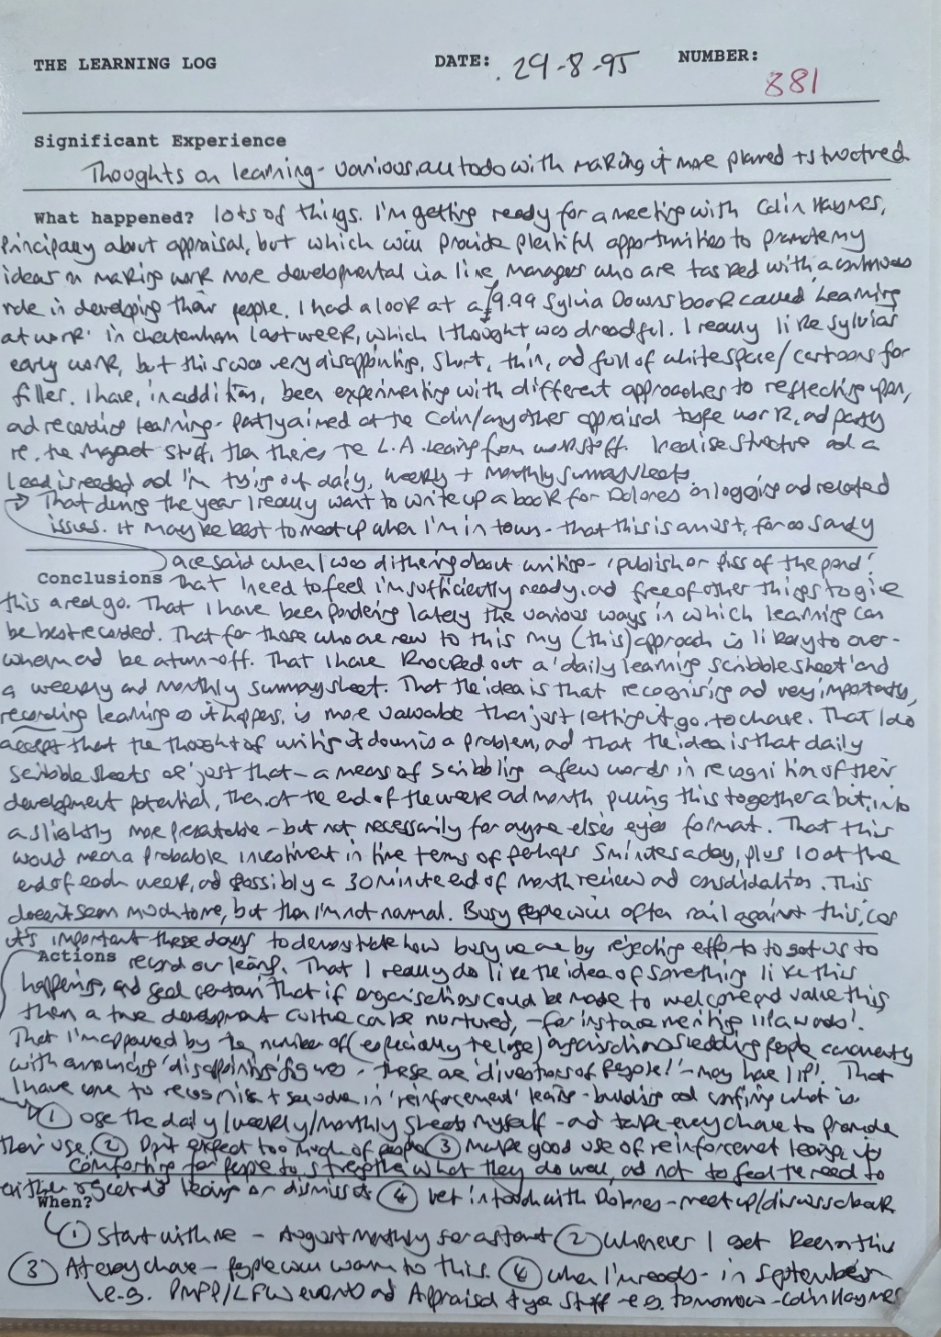 THE LEARNING LOG DATE: 29-8-95 NUMBER: 881
Significant Experience
Thoughts on learning - various, all to do with making it more planned + structured
What happened? lots of things. I'm getting ready for a meeting with Colin Haynes,
principally about appraisal, but which will provide plentiful opportunities to promote my
ideas on making work more developmental via line managers who are tasked with a continuous
role in developing their people. I had a look at a £9.99 Sylvia Downs book called 'Learning
at work' in Cheltenham last week, which I thought was dreadful. I really like Sylvia's
early work, but this was very disappointing, short, thin, and full of white space/cartoons for
filler. I have, in addition, been experimenting with different approaches to reflecting upon,
and recording learning - partly aimed at the Colin/any other appraisal type work, and partly
re. the stuff, then there's the L.A. learning from work stuff. I realise structure and a
lead is needed and I'm trying out daily, weekly + monthly summary sheets.
That during the year I really want to write up a book for Dolores on logging and related
issues. It may be best to meet up when I'm in town - that this is a must, for as Sandy
ace said when I was dithering about writing - 'publish or piss off the pond'.
Conclusions That I need to feel I'm sufficiently ready, and free of other things to give
this a real go. That I have been pondering lately the various ways in which learning can
be best recorded. That for those who are new to this my (this) approach is likely to over-
whelm and be a turn-off. That I have knocked out a 'daily learning scribble sheet' and
a weekly and monthly summary sheet. That the idea is that recognising and very importantly,
recording learning as it happens, is more valuable than just letting it go, to chance. That I do
accept that the thought of writing it down is a problem, and that the idea is that daily
scribble sheets are just that - a means of scribbling a few words in recognition of their
development potential, then at the end of the week and month pulling this together a bit, into
a slightly more presentable - but not necessarily for anyone else's eyes format. That this
would mean a probable involvement in time terms of perhaps 5 minutes a day, plus 10 at the
end of each week, and possibly a 30 minute end of month review and consolidation. This
doesn't seem much to me, but then I'm not normal. Busy people will often rail against this, cos
it's important these days to demonstrate how busy we are by rejecting efforts to get us to
Actions record our learning. That I really do like the idea of something like this
happening, and feel certain that if organisations could be made to welcome and value this
then a true development culture can be nurtured, - for instance meriting IIP awards!
That I'm appalled by the number of (especially the large) organisations shedding people concurrently
with announcing 'disappointing figures' - these are 'divestors of people!' - may have IIP! That
I have come to recognise + in 'reinforcement' learning - building and confirming what is
① Use the daily/weekly/monthly sheets myself - and take every chance to promote
their use. ② Don't expect too much of people ③ make good use of reinforcement learning
comforting for people to strengthen what they do well, and not to feel the need to
either learning or dismiss it ④ Get in touch with Dolores - meet up/discuss book
When?
① Start with me - August monthly for a start ② Whenever I get
③ At every chance - people will warm to this. ④ When I'm ready - in September
e.g. PMPP/LFW events and Appraisal type stuff - e.g. tomorrow - Colin Haynes